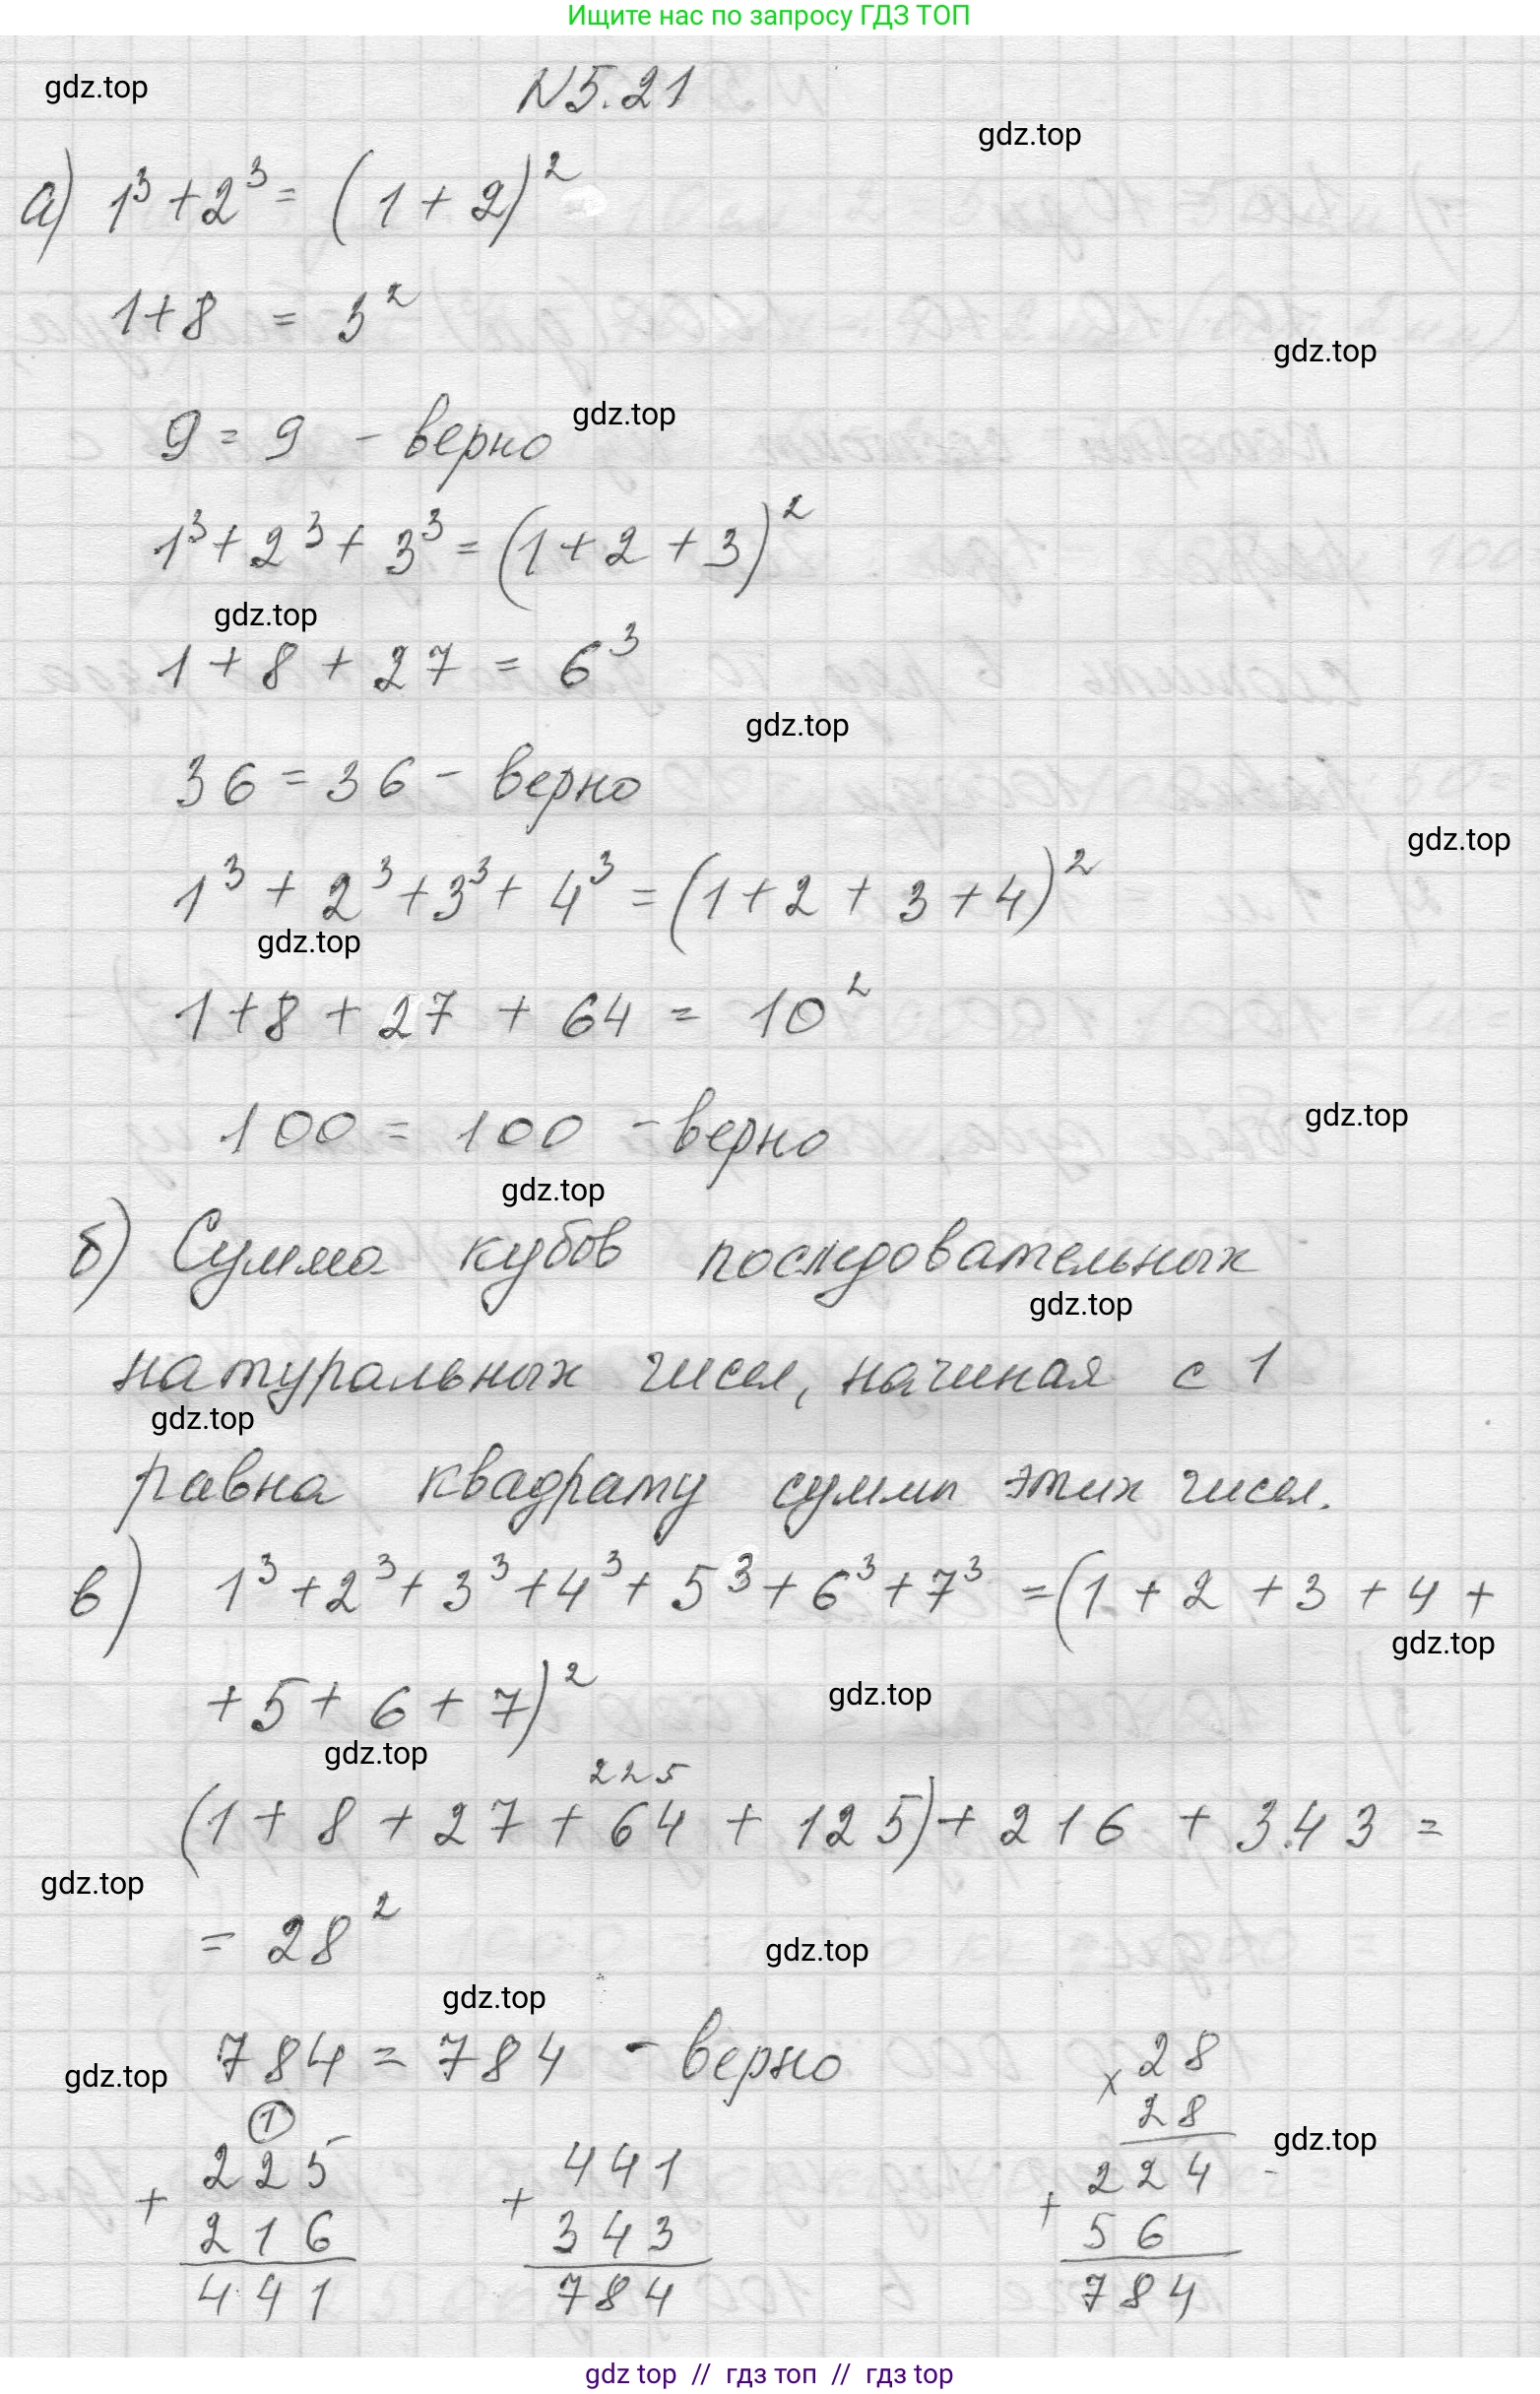 Ищите нас по запросу ГДЗ ТОП
gdz.top
N5.21
gdz.top
а) 1³ + 2³ = (1 + 2)²
1 + 8 = 3²
gdz.top
9 = 9 - верно
gdz.top
1³ + 2³ + 3³ = (1 + 2 + 3)²
gdz.top
1 + 8 + 27 = 6³
gdz.top
36 = 36 - верно
gdz.top
1³ + 2³ + 3³ + 4³ = (1 + 2 + 3 + 4)²
gdz.top
1 + 8 + 27 + 64 = 10²
100 = 100 - верно
gdz.top
gdz.top
б) Сумма кубов последовательных
gdz.top
натуральных чисел, начиная с 1
gdz.top
равна квадрату суммы этих чисел.
в) 1³ + 2³ + 3³ + 4³ + 5³ + 6³ + 7³ = (1 + 2 + 3 + 4 +
gdz.top
+ 5 + 6 + 7)²
gdz.top
gdz.top
225
(1 + 8 + 27 + 64 + 125) + 216 + 343 =
gdz.top
= 28²
gdz.top
gdz.top
784 = 784 - верно
gdz.top
1
225
+
216
441
441
+
343
784
28
x
28
gdz.top
224
+
56
784
gdz top // гдз топ // гдз top